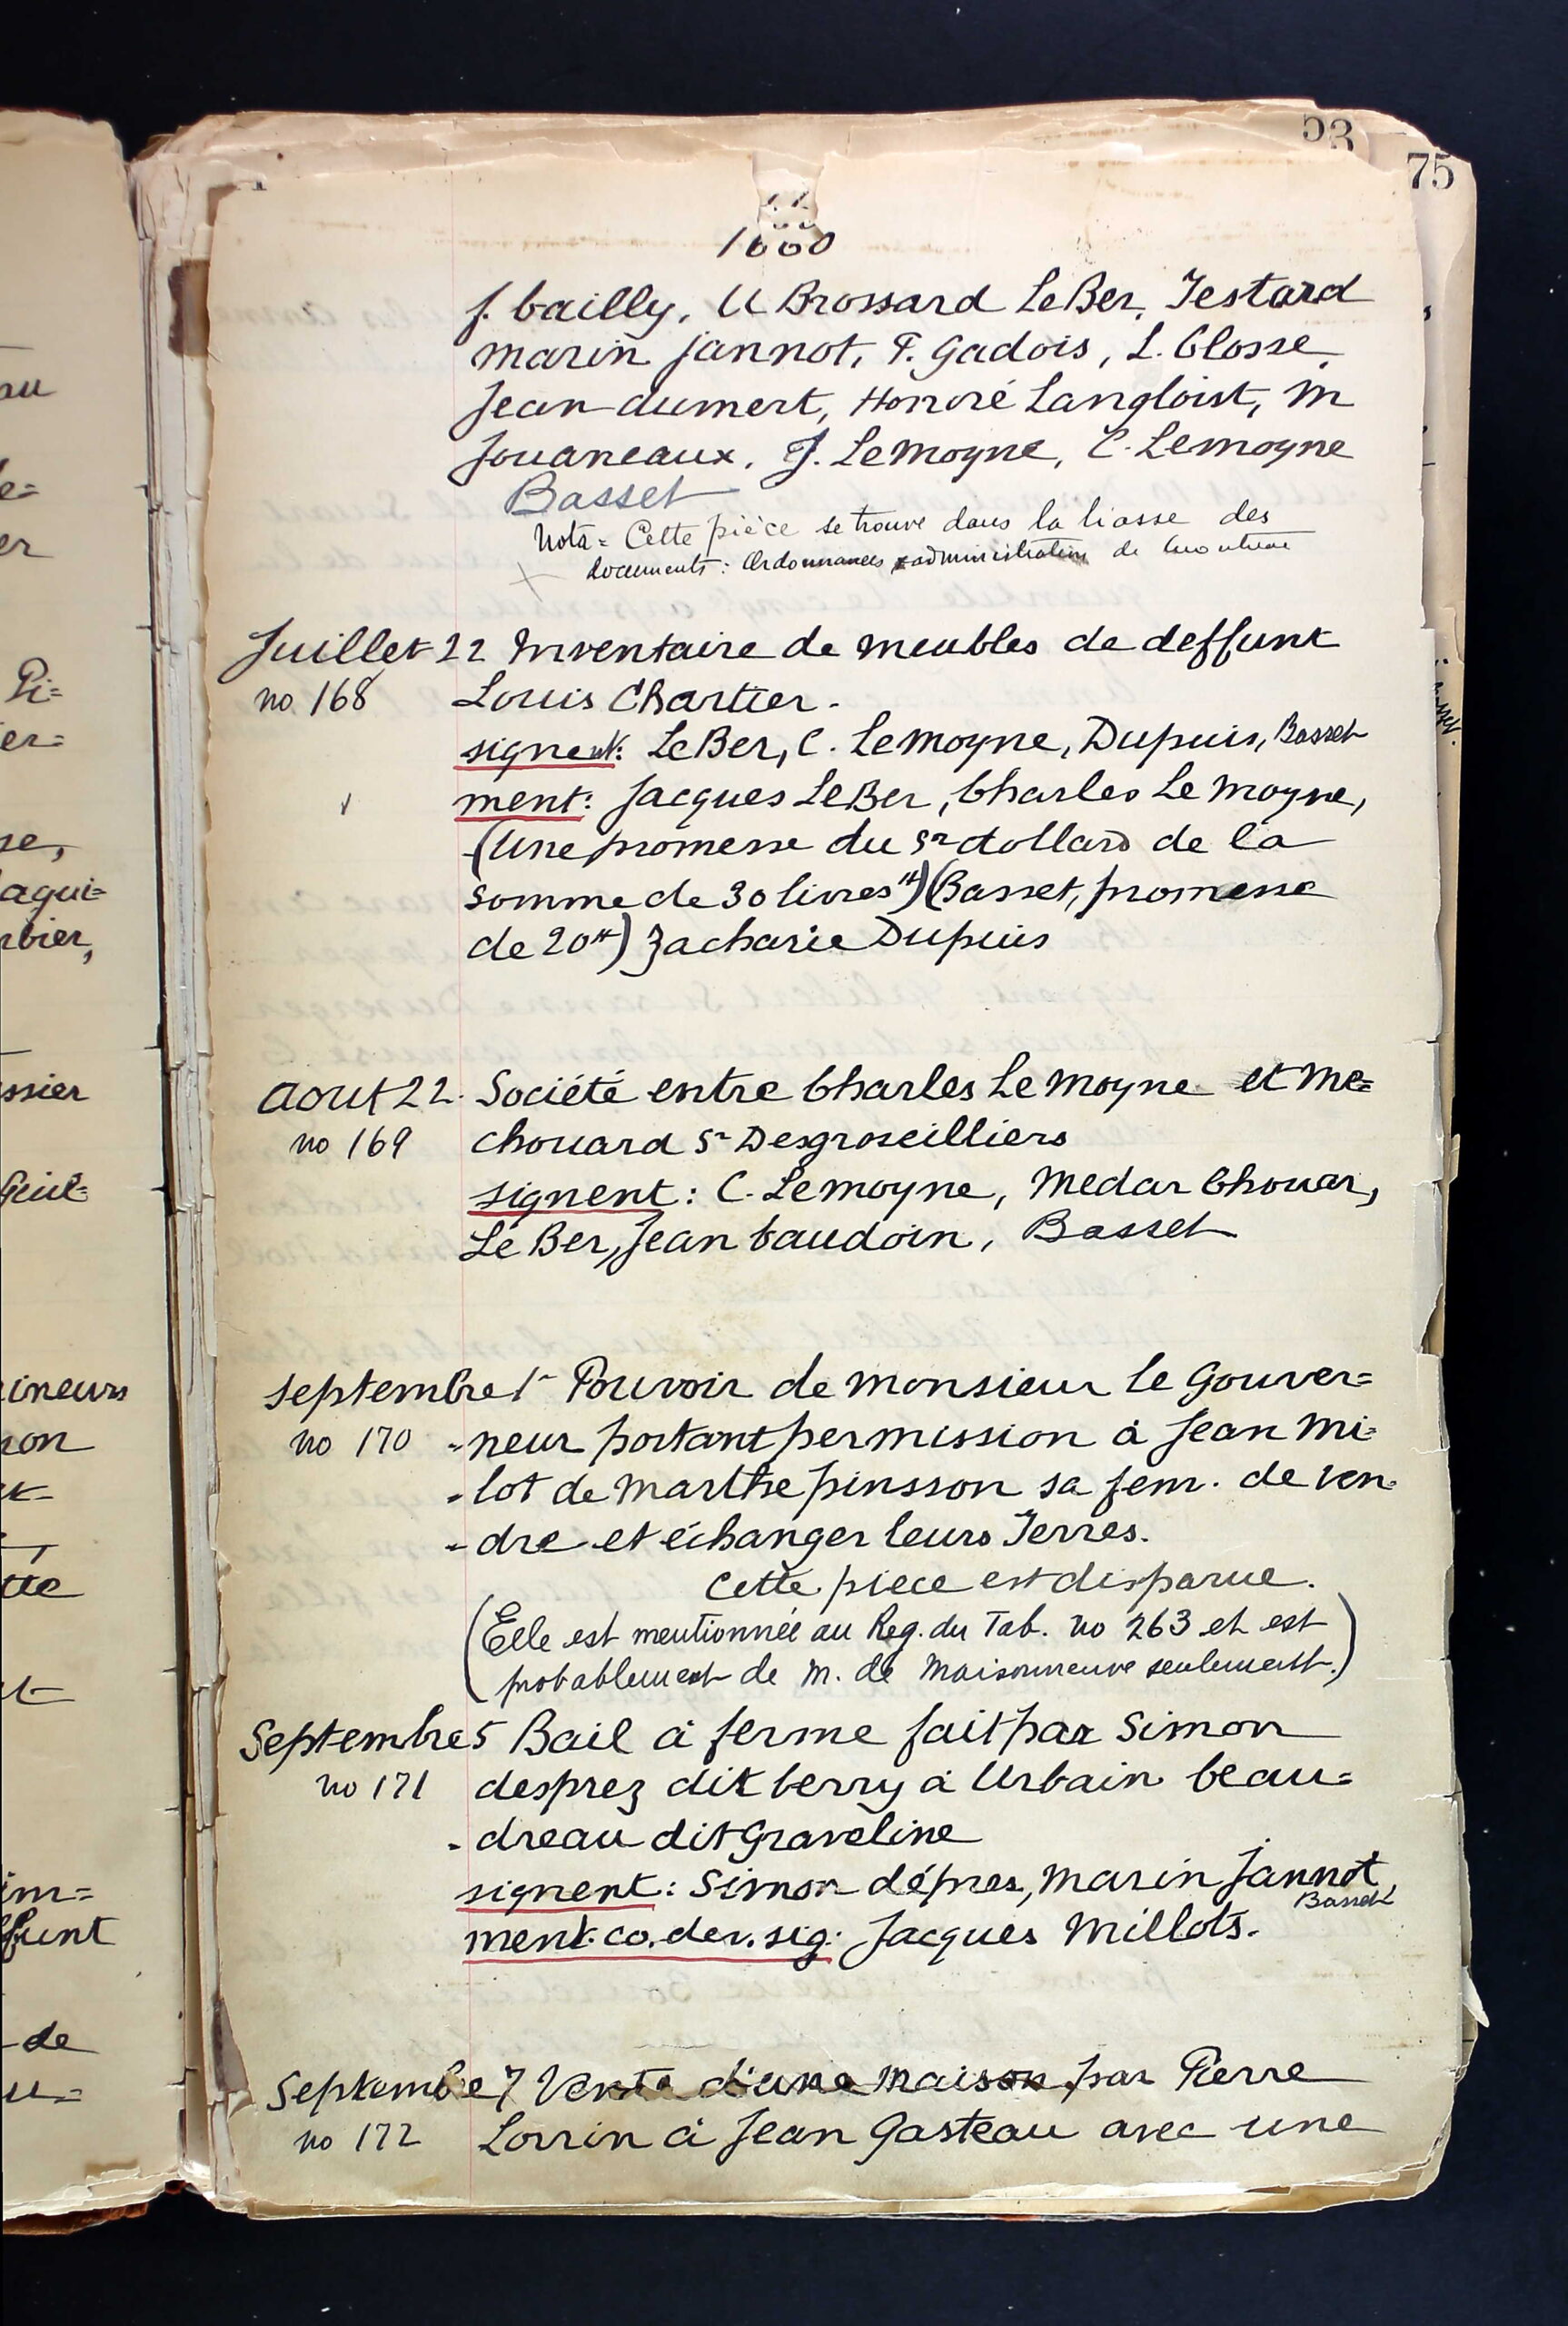 53
75
1660
J. bailly, U Brossard LeBer, Testard
marin jannot, P. Gadois, L. Closse,
Jean dumert, Honoré Langloist, M
Jouaneaux, J. LeMoyne, C. Lemoyne
Basset
Nota = Cette pièce se trouve dans la liasse des
documents: Ordonnances administration de
Juillet 22 Inventaire de meubles de deffunt
no 168 Louis Chartier.
signent: LeBer, C. Lemoyne, Dupuis, Basset
ment: Jacques LeBer, Charles Le moyne,
(Une promesse du Sr dollard de la
somme de 30 livres ") (Basset, promesse
de 20 ") Zacharie Dupuis
aout 22. Société entre Charles Le Moyne et Me=
no 169 chouard Sr Desgroseilliers
signent: C. Lemoyne, Medar Chouar,
Le Ber, Jean baudoin, Basset
septembre 1r Pouvoir de monsieur le Gouver=
no 170 -neur portant permission à Jean Mi-
-lot de Marthe pinsson sa fem. de ven-
-dre et échanger leurs Terres.
Cette pièce est disparue.
(Elle est mentionnée au Reg. du Tab. no 263 et est
probablement de M. de Maisonneuve seulement.)
Septembre 5 Bail à ferme fait par Simon
no 171 desprez dit berry à Urbain beau=
-dreau dit Graveline
signent: Simon dépres, Marin Jannot,
Basset
ment. co. der. sig: Jacques Millots.
Septembre 7 Vente d'une Maison par Pierre
no 172 Lorrin à Jean Gasteau avec une
su
e=
er
Pi=
er=
se,
aqui=
rbier,
ssier
Geul=
ineurs
son
et
im=
ffunt
-de
u=